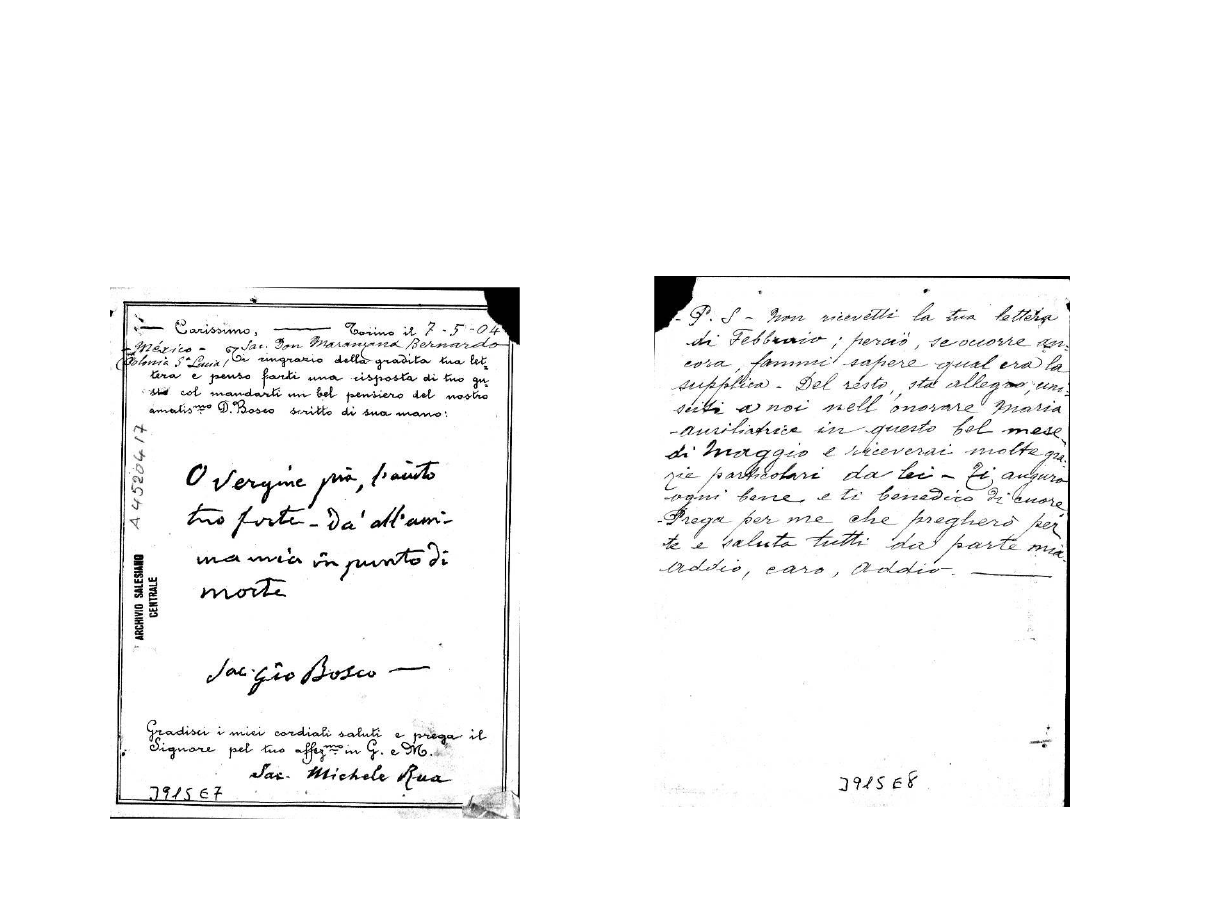 Carissimo, Torino il 7-5-04
Sac. Don Maranzana Bernardo
- México -
(Colonia Sta Lucia)
Ti ringrazio della gradita tua let-
tera e penso farti una risposta di tuo gu-
sto col mandarti un bel pensiero del nostro
amatismo D. Bosco scritto di sua mano:
O Vergine pia, l'aiuto
tuo forte - Da' all'ani-
ma mia in punto di
morte
Sac. Gio Bosco
Gradisci i miei cordiali saluti e prega il
Signore pel tuo affezmo in G. e M.
Sac. Michele Rua
A4520417
ARCHIVIO SALESIANO
CENTRALE
3915E7
- P. S - Non ricevetti la tua lettera
di Febbraio; perciò, se occorre an-
cora, fammi sapere qual era la
supplica - Del resto, sta allegro, uni-
sciti a noi nell'onorare Maria
-ausiliatrice in questo bel mese
di Maggio e riceverai molte gra-
zie particolari da lei - Ti auguro
ogni bene e ti benedico di cuore
-Prega per me che pregherò per
te e saluta tutti da parte mia.
Addio, caro, addio.
3915E8